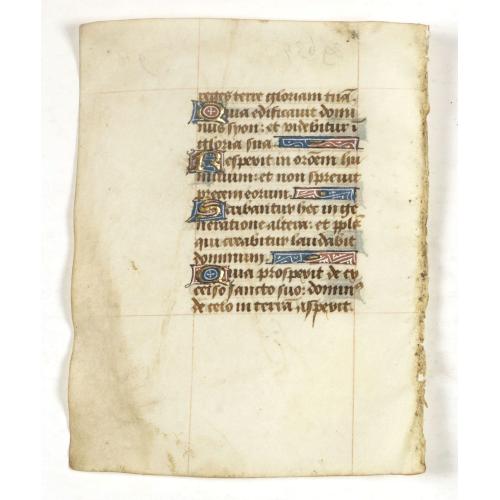 reges terre gloriam tuā.
Qua edificauit domi
nus syon: et videbitur ī
gloria sua.
Respexit in orōem hu
milium: et non spreuit
precem eorum.
Scribantur hec in ge
neratione altera: et ppl̄s
qui creabitur laudabit
dominum.
Quia prospexit de ex
celso sancto suo: domin⁹
de celo in terrā aspexit.